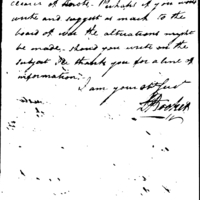 of Perhaps if you would
write and suggest as much to the
board of the alterations might
be made. should you write on the
subject I'll thank you for a line of
information.
I am yours